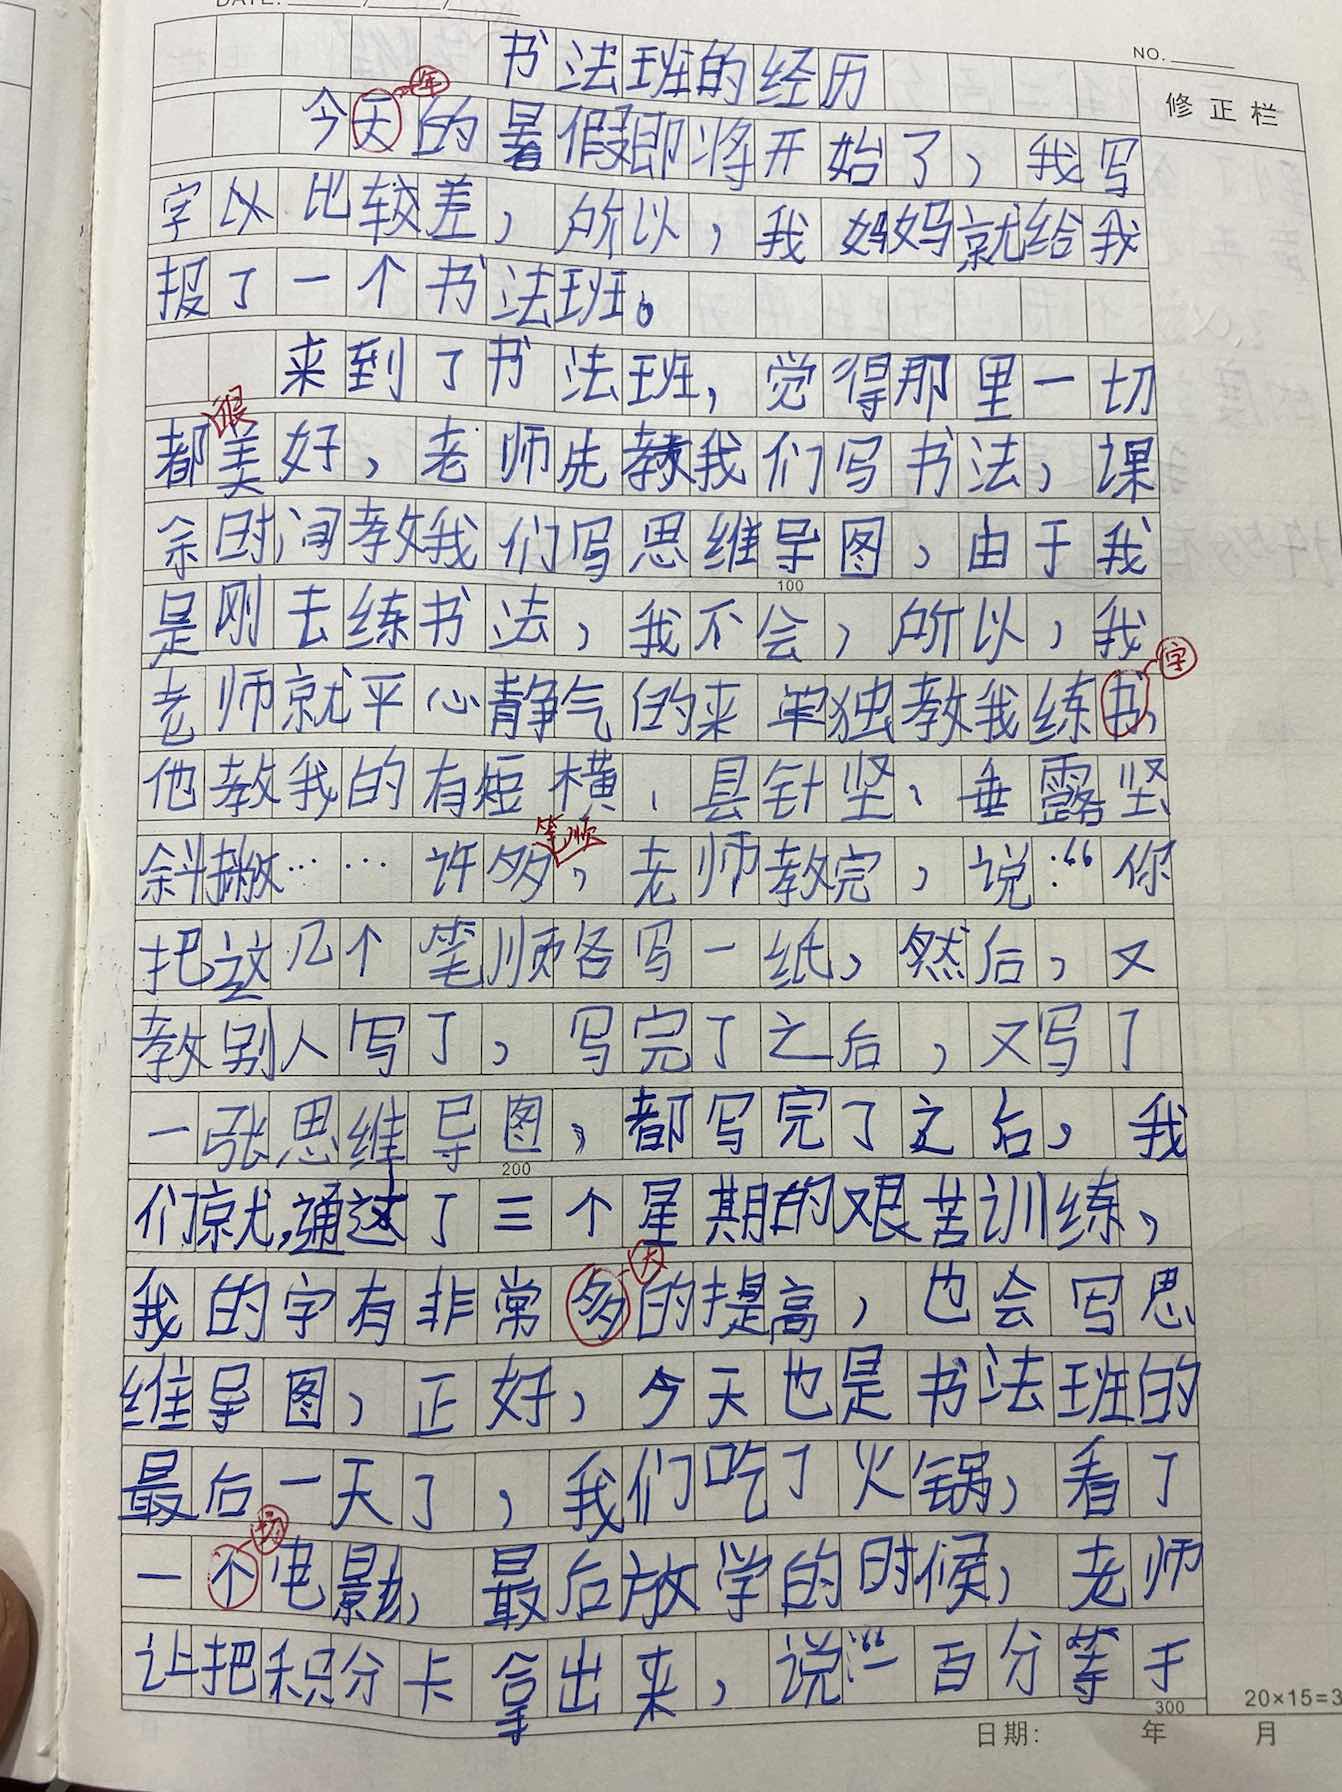 DATE: ____/____/____
NO. ____
书法班的经历
修正栏
年
今天的暑假即将开始了，我写
字以比较差，所以，我妈妈就给我
报了一个书法班。
来到了书法班，觉得那里一切
很
都美好，老师先教我们写书法，课
余时间教我们写思维导图，由于我
100
是刚去练书法，我不会，所以，我
字
老师就平心静气的来单独教我练书，
他教我的有短横、县针坚、垂露坚
笔顺
斜撇……许多，老师教完，说：“你
把这几个笔顺各写一纸，然后，又
教别人写了，写完了之后，又写了
一张思维导图，都写完了之后，我
200
们就，通这了三个星期的艰苦训练，
大
我的字有非常多的提高，也会写思
维导图，正好，今天也是书法班的
最后一天了，我们吃了火锅，看了
场
一个电影，最后放学的时候，老师
让把积分卡拿出来，说：“一百分等于
300
20×15=3
日期： 年 月